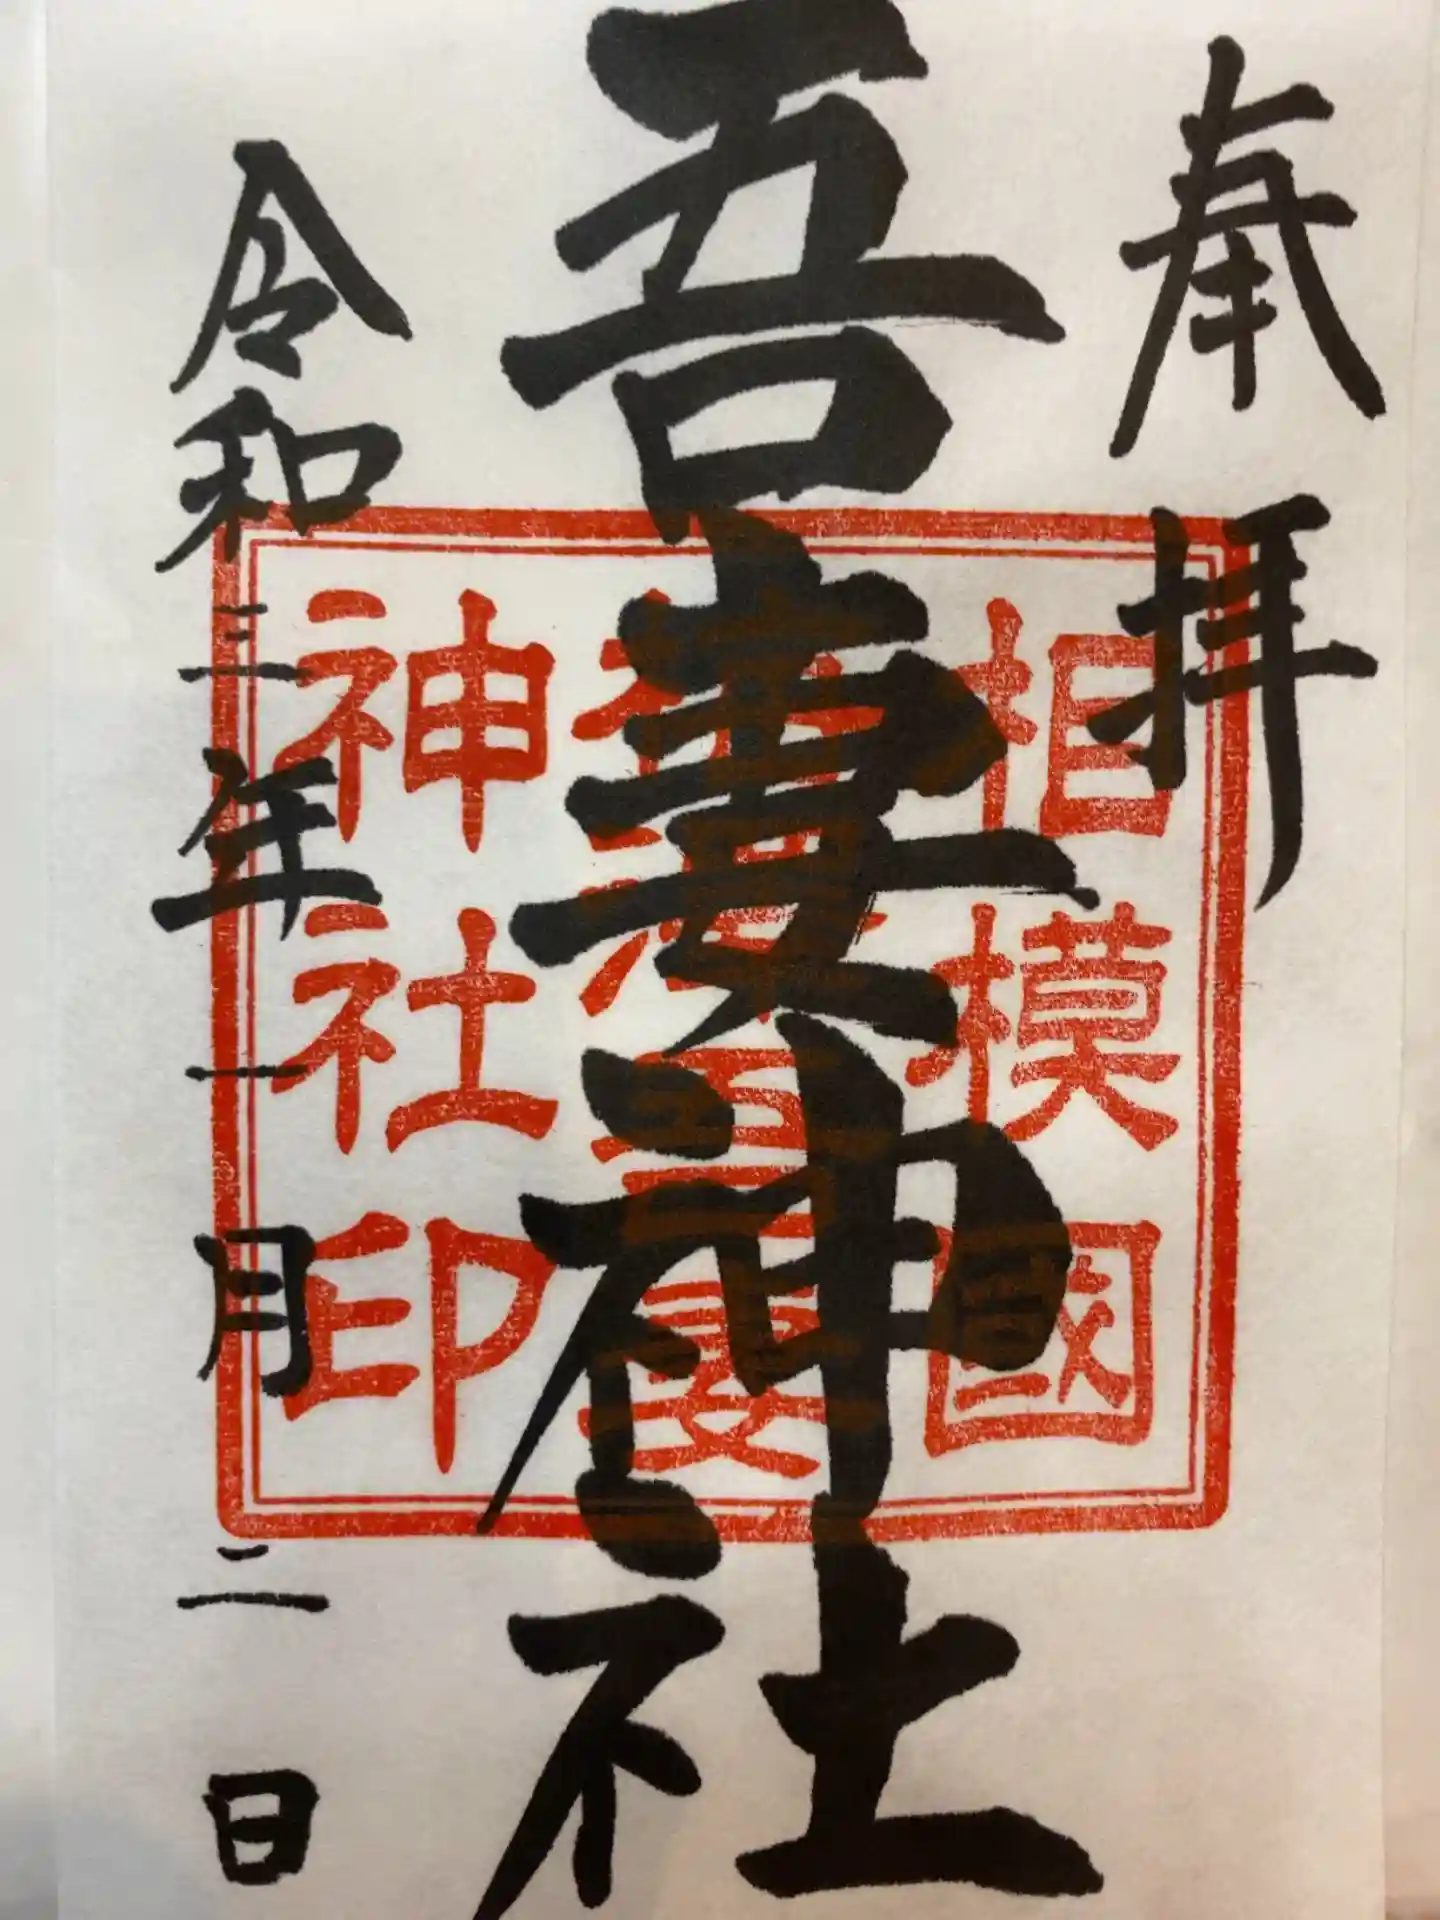 奉拝
吾妻神社
令和三年一月二日
相模國
吾妻
神社印